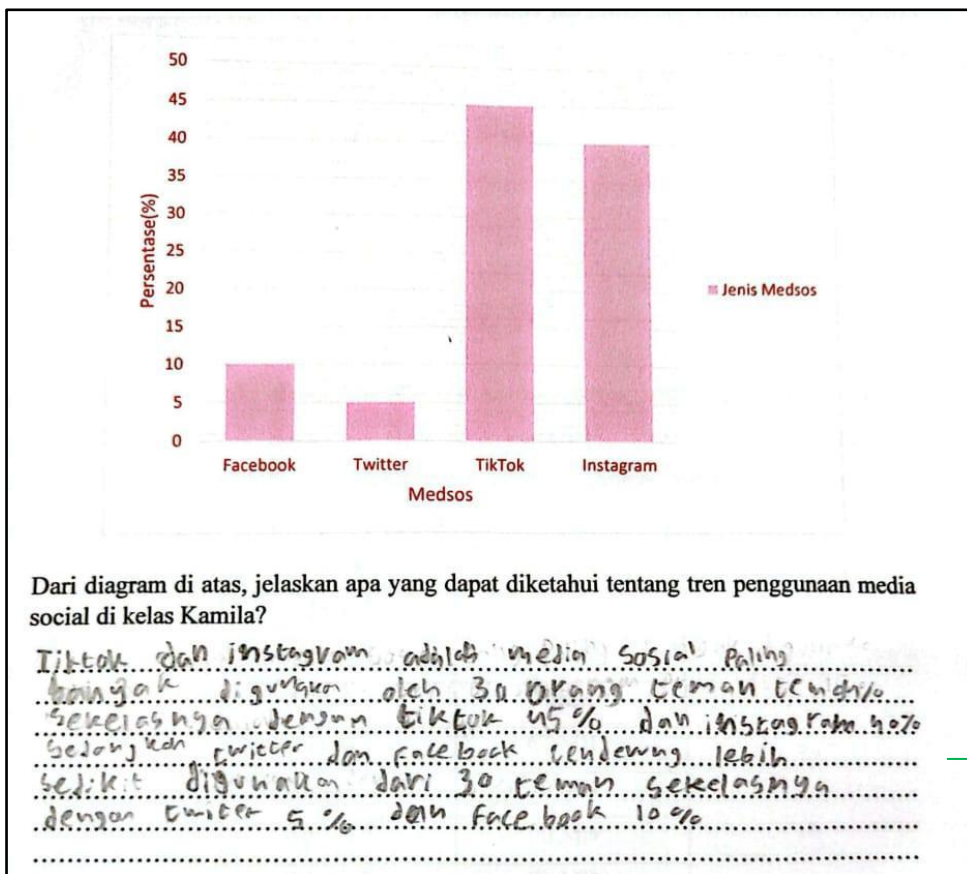 50
45
40
35
30
25
20
15
10
5
0
Persentase(%)
Facebook Twitter TikTok Instagram
Medsos
Jenis Medsos
Dari diagram di atas, jelaskan apa yang dapat diketahui tentang tren penggunaan media
social di kelas Kamila?
Tiktok dan instagram adalah media sosial Paling
banyak digunakan oleh 30 orang teman
sekelasnya dengan tiktok 45% dan instagram 40%
sedangkan twitter dan facebook cendewng lebih
sedikit digunakan dari 30 teman sekelasnya
dengan twiter 5 % dan Facebook 10 %